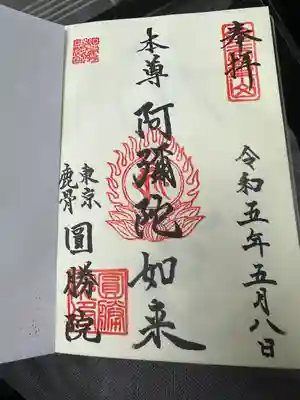 奉拝
令和五年五月八日
本尊 阿彌陀如来
東京
鹿骨
圓勝院